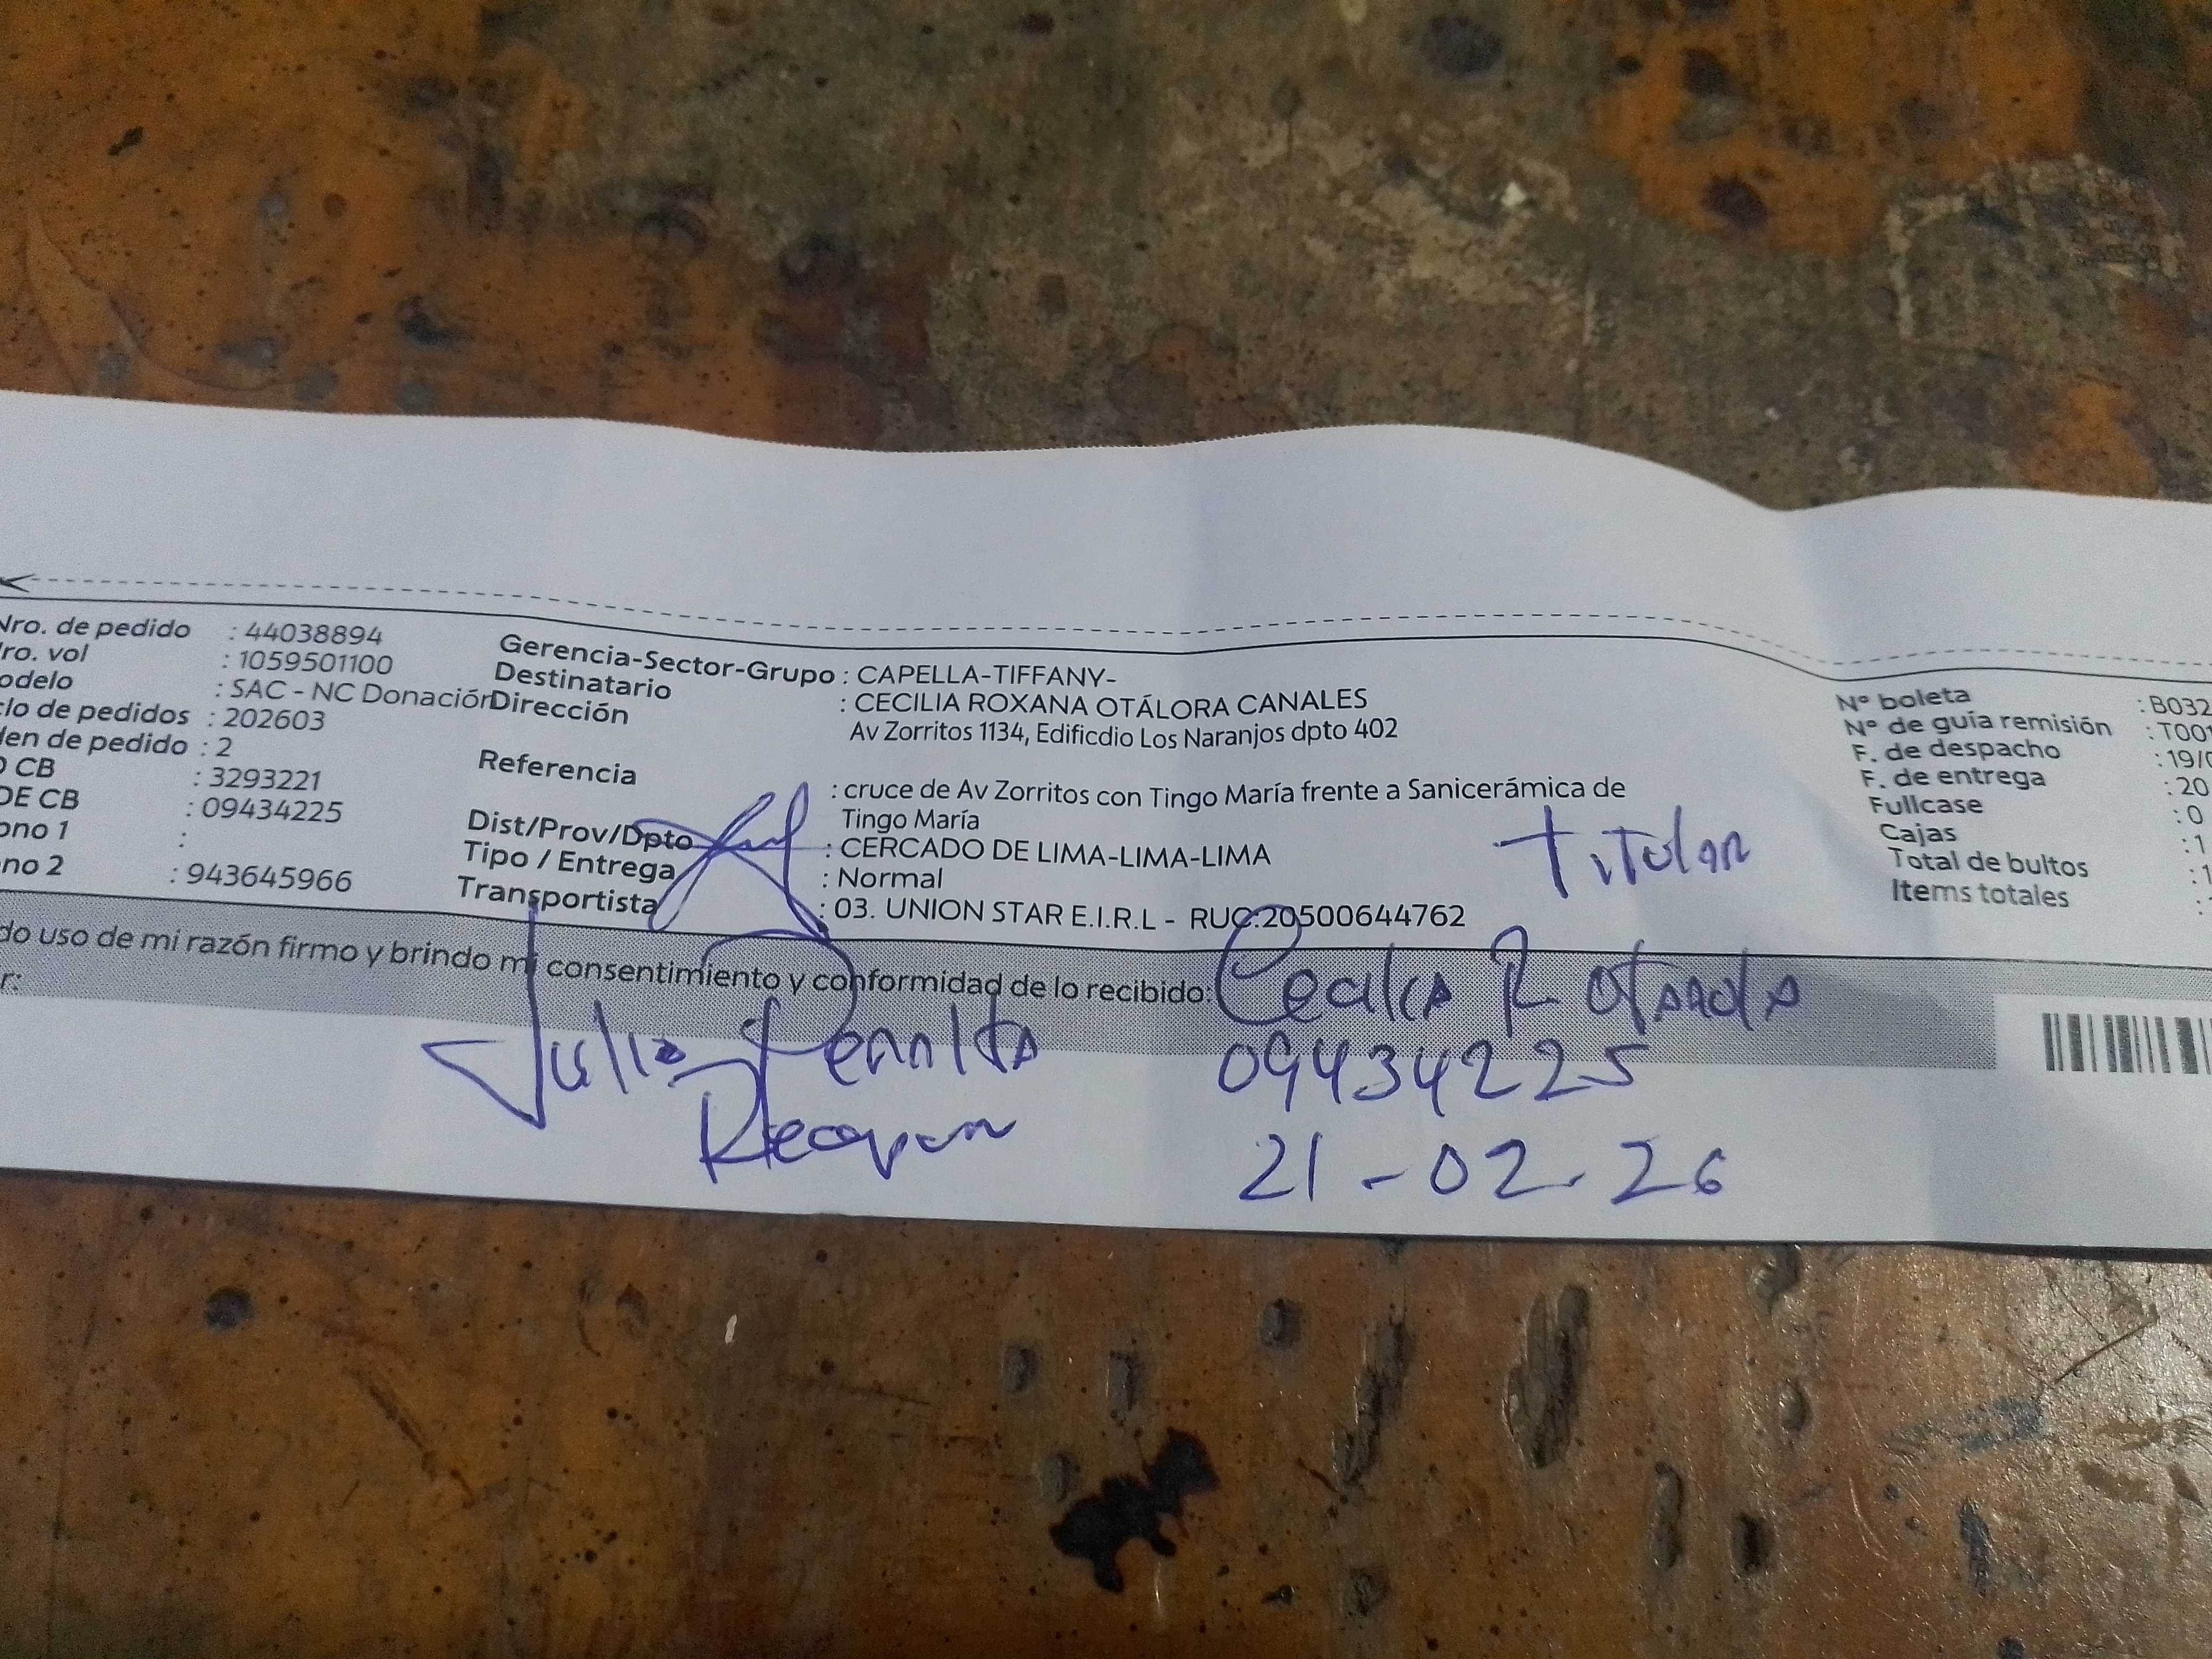 Nro. de pedido : 44038894
ro. vol : 1059501100
odelo : SAC - NC Donación
clo de pedidos : 202603
den de pedido : 2
O CB : 3293221
DE CB : 09434225
ono 1 :
no 2 : 943645966
Gerencia-Sector-Grupo : CAPELLA-TIFFANY-
Destinatario : CECILIA ROXANA OTÁLORA CANALES
Dirección Av Zorritos 1134, Edificdio Los Naranjos dpto 402
Referencia : cruce de Av Zorritos con Tingo María frente a Sanicerámica de
Tingo María
Dist/Prov/Dpto : CERCADO DE LIMA-LIMA-LIMA
Tipo / Entrega : Normal
Transportista : 03. UNION STAR E.I.R.L - RUC:20500644762
Nº boleta : B032
Nº de guía remisión : T001
F. de despacho : 19/0
F. de entrega : 20
Fullcase : 0
Cajas : 1
Total de bultos : 1
Items totales :
Titular
do uso de mi razón firmo y brindo mi consentimiento y conformidad de lo recibido:
r:
Julia Peralta
Cecilia R Otalora
09434225
21-02-26